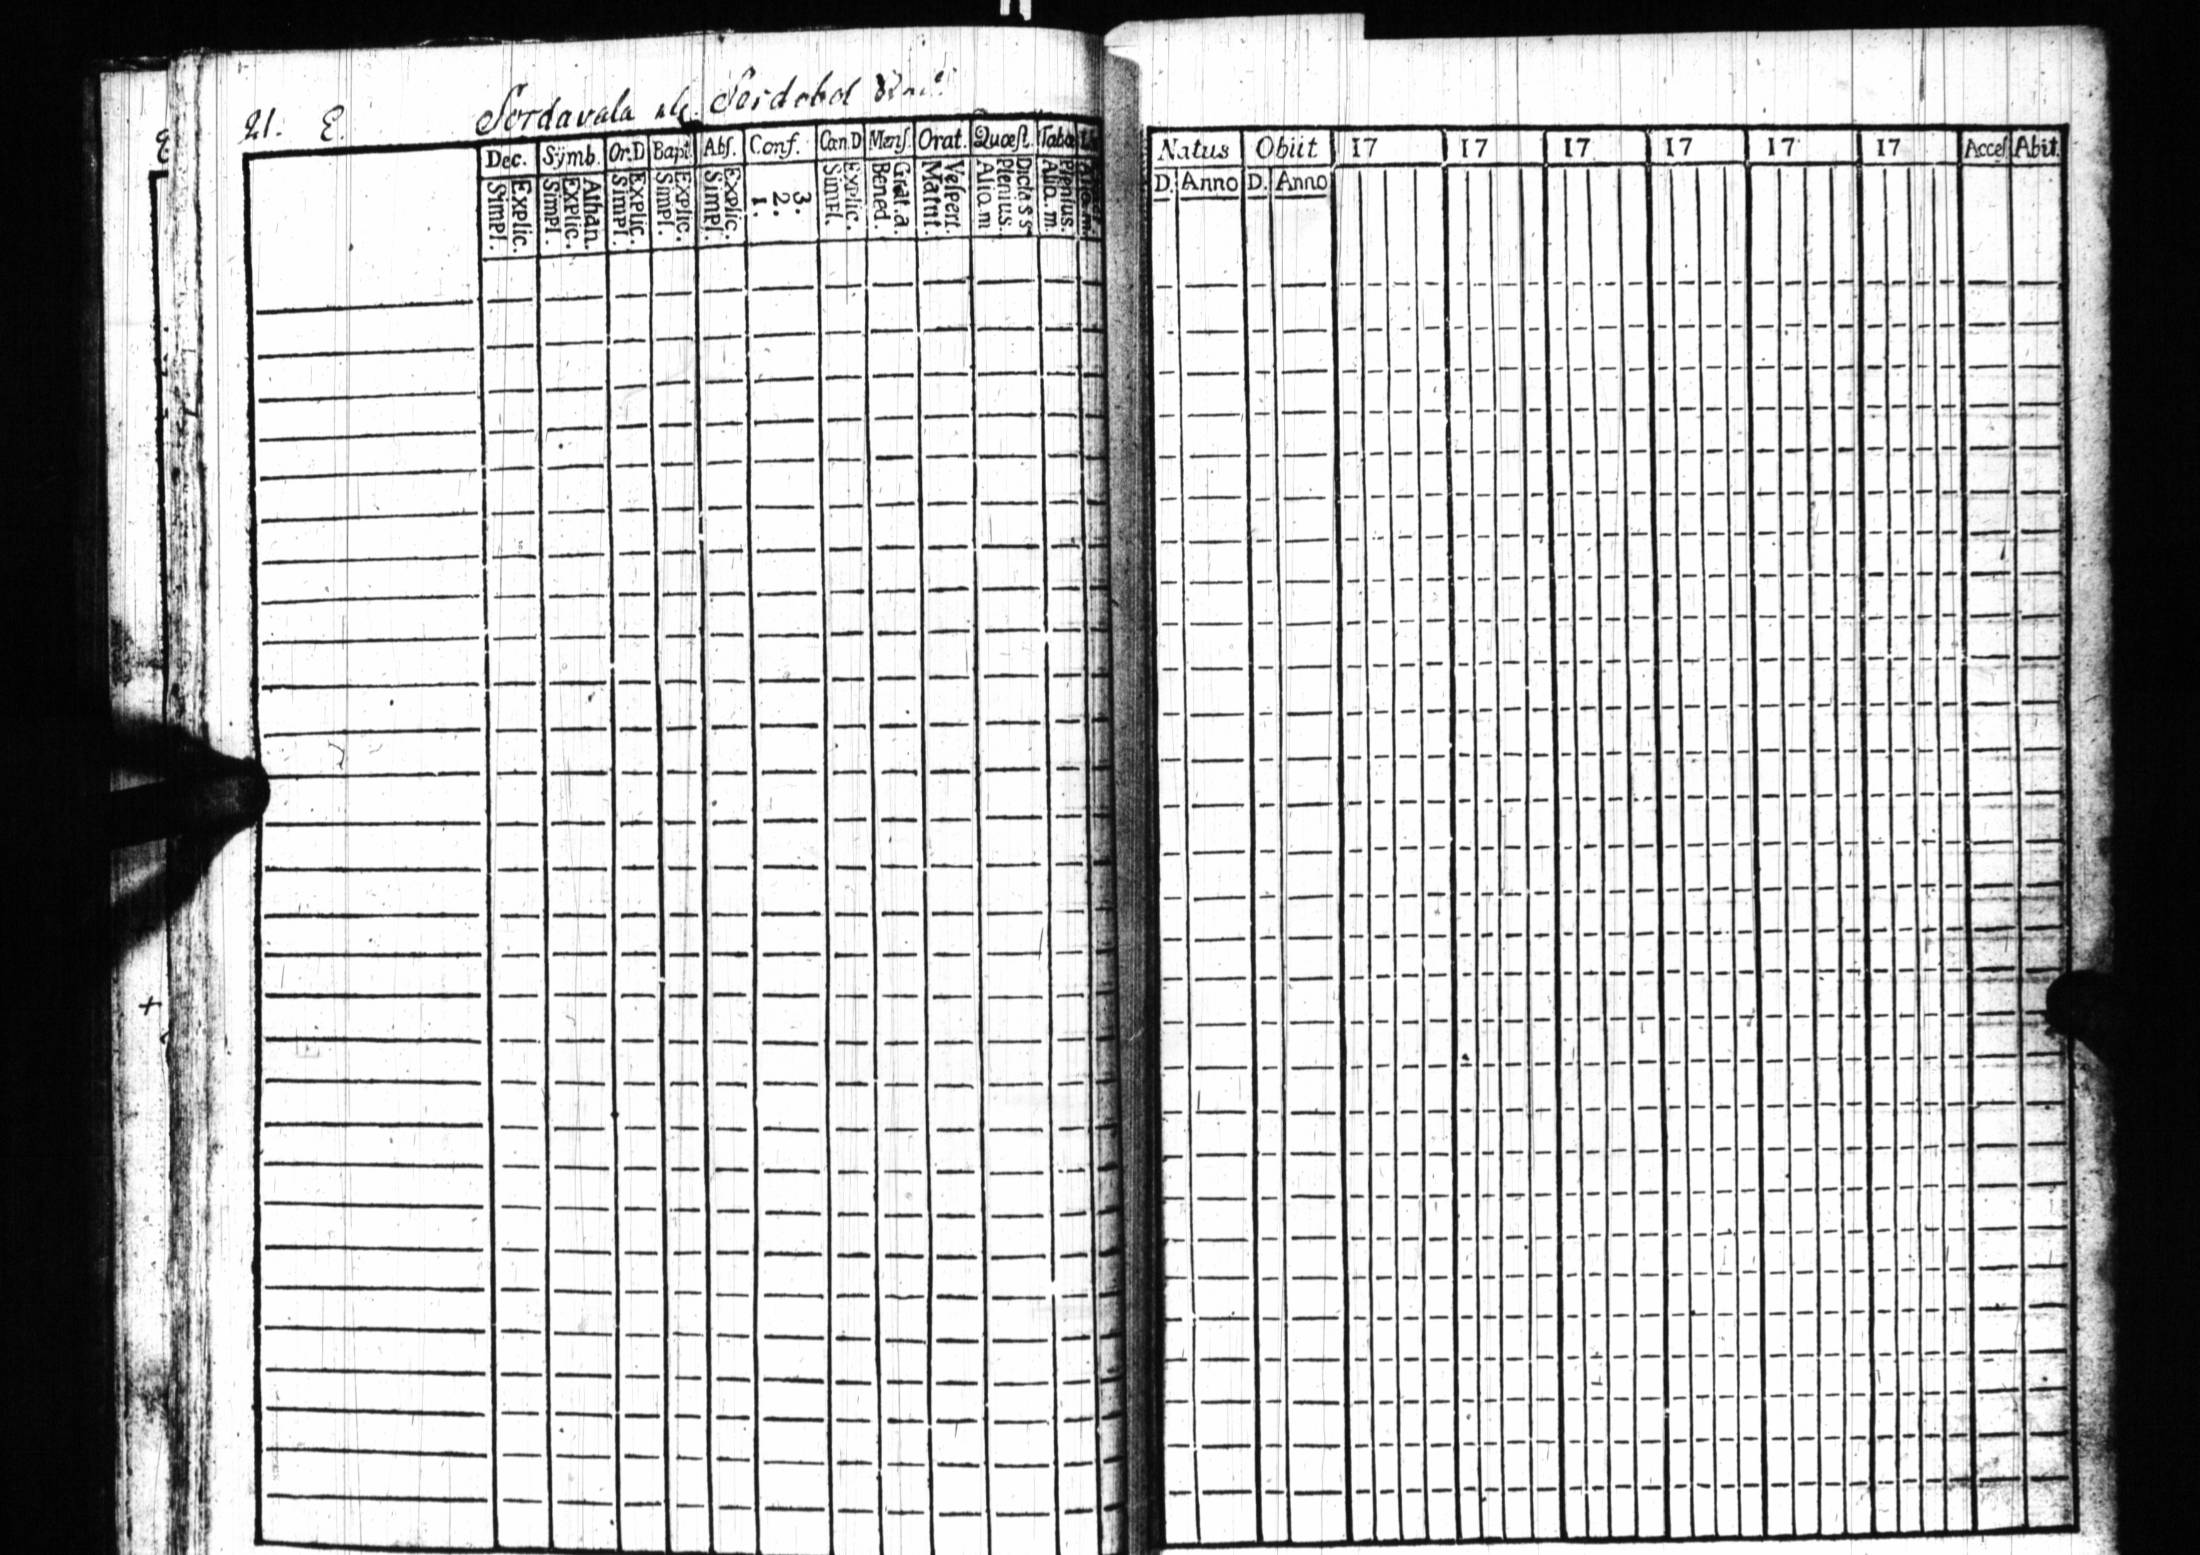 21. E. Sordavala
Dec. Symb. Or.D Bapt. Abſ. Conf. Can.D Menſ. Orat. Quæſt. Taba
Simpl. Explic. Simpl. Explic. Athan. Simpl. Explic. Simpl. Explic. Simpl. Explic. 1. 2. 3. Simpl. Explic. Bened. Grat.a. Matut. Veſpert. Alio.m Plenius. Dic.ta s s Alio.m. Plenius. Alio.m.
Natus Obiit 17 17 17 17 17 17 Acceſ Abit.
D. Anno D. Anno